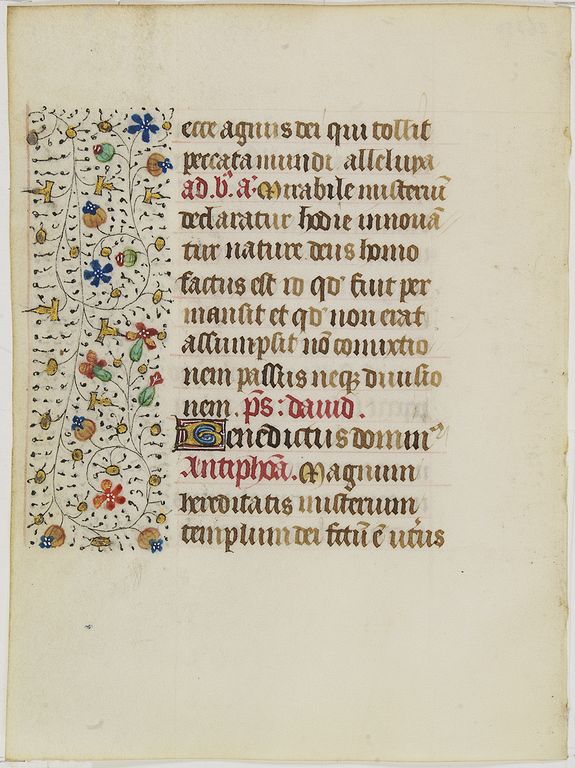 ecce agnus dei qui tollit
peccata mundi alleluya
ad. b̄. a᷈. Mirabile misteriū
declaratur hodie innouā
tur nature deus homo
factus est id qd' fuit per
mansit et qd' non erat
assumpsit nō comixtio
nem passus neqꝫ diuisio
nem. p̄s: dauid.
Benedictus domin
Antiphōa. Magnum
hereditatis misterium
templum dei fctū ē ut'us